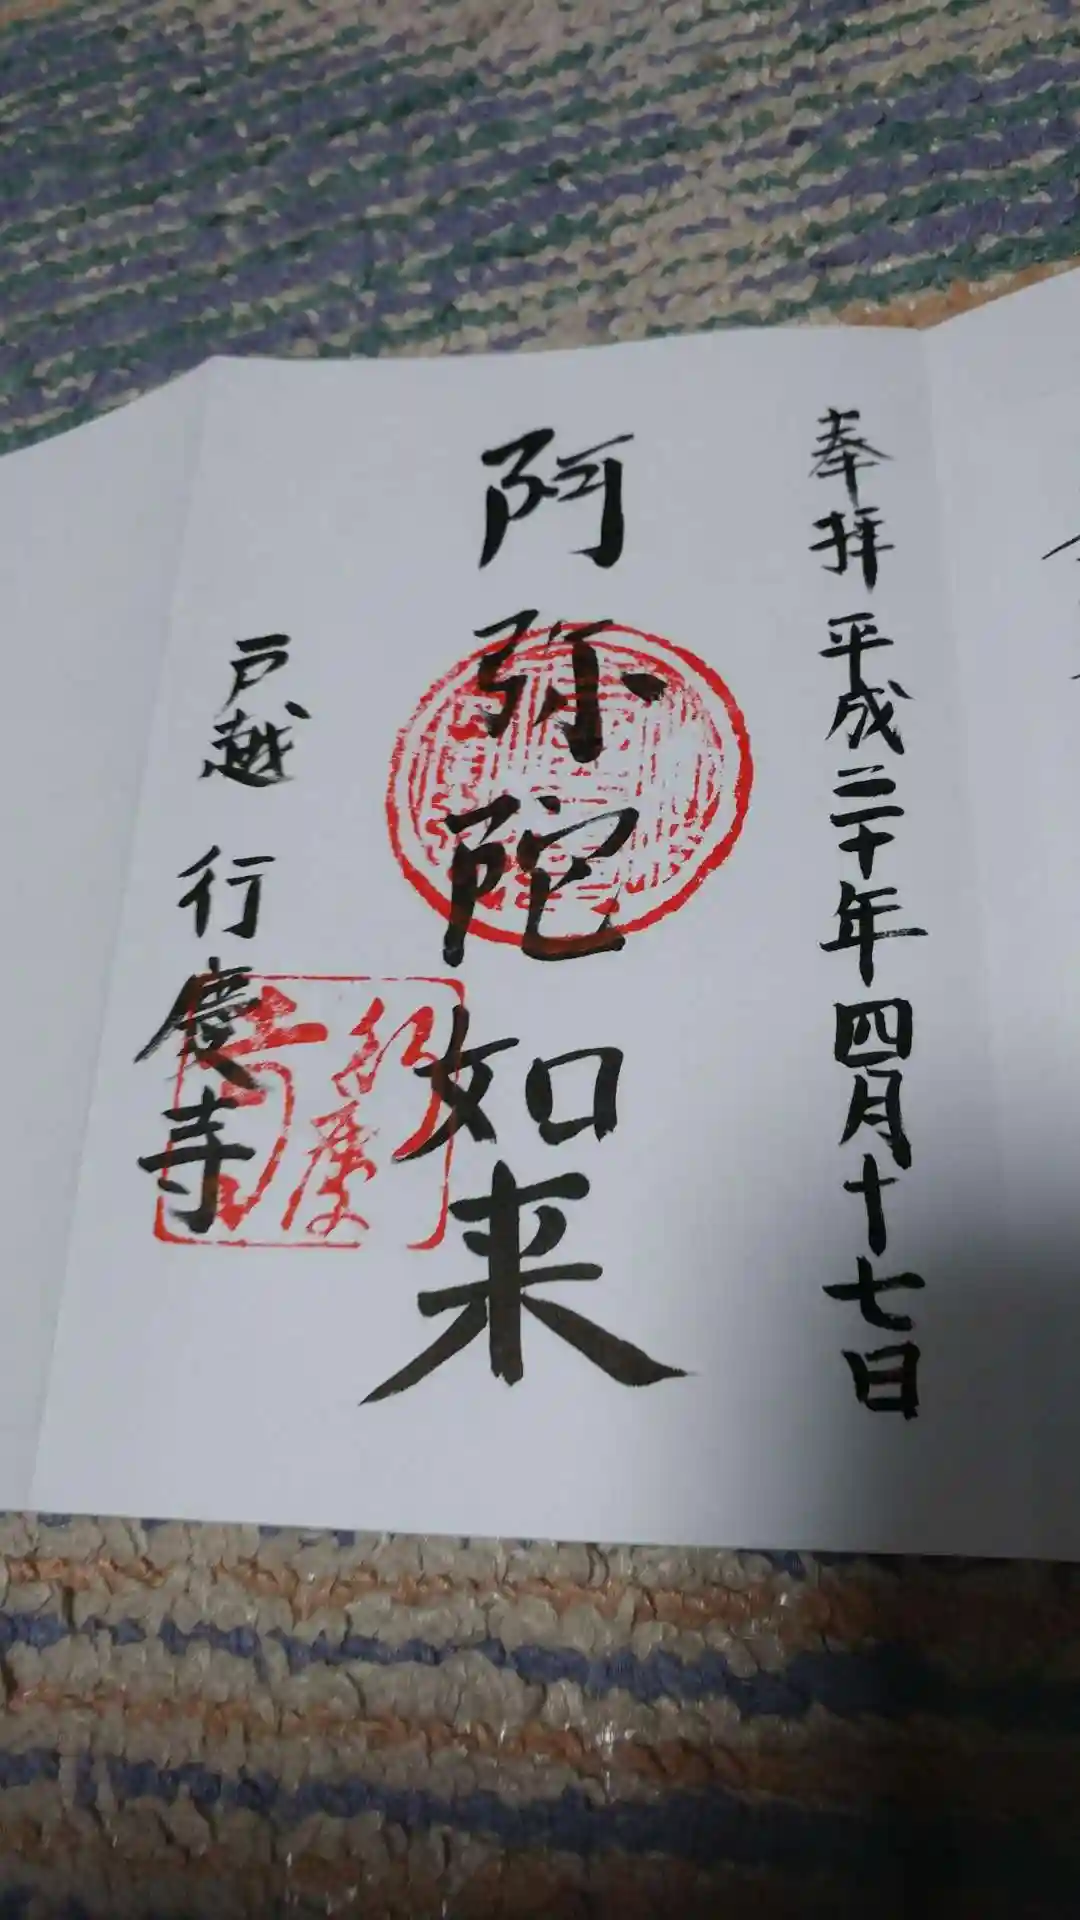 奉拝 平成二十年四月十七日
阿弥陀如来
戸越 行慶寺
行慶
寺印